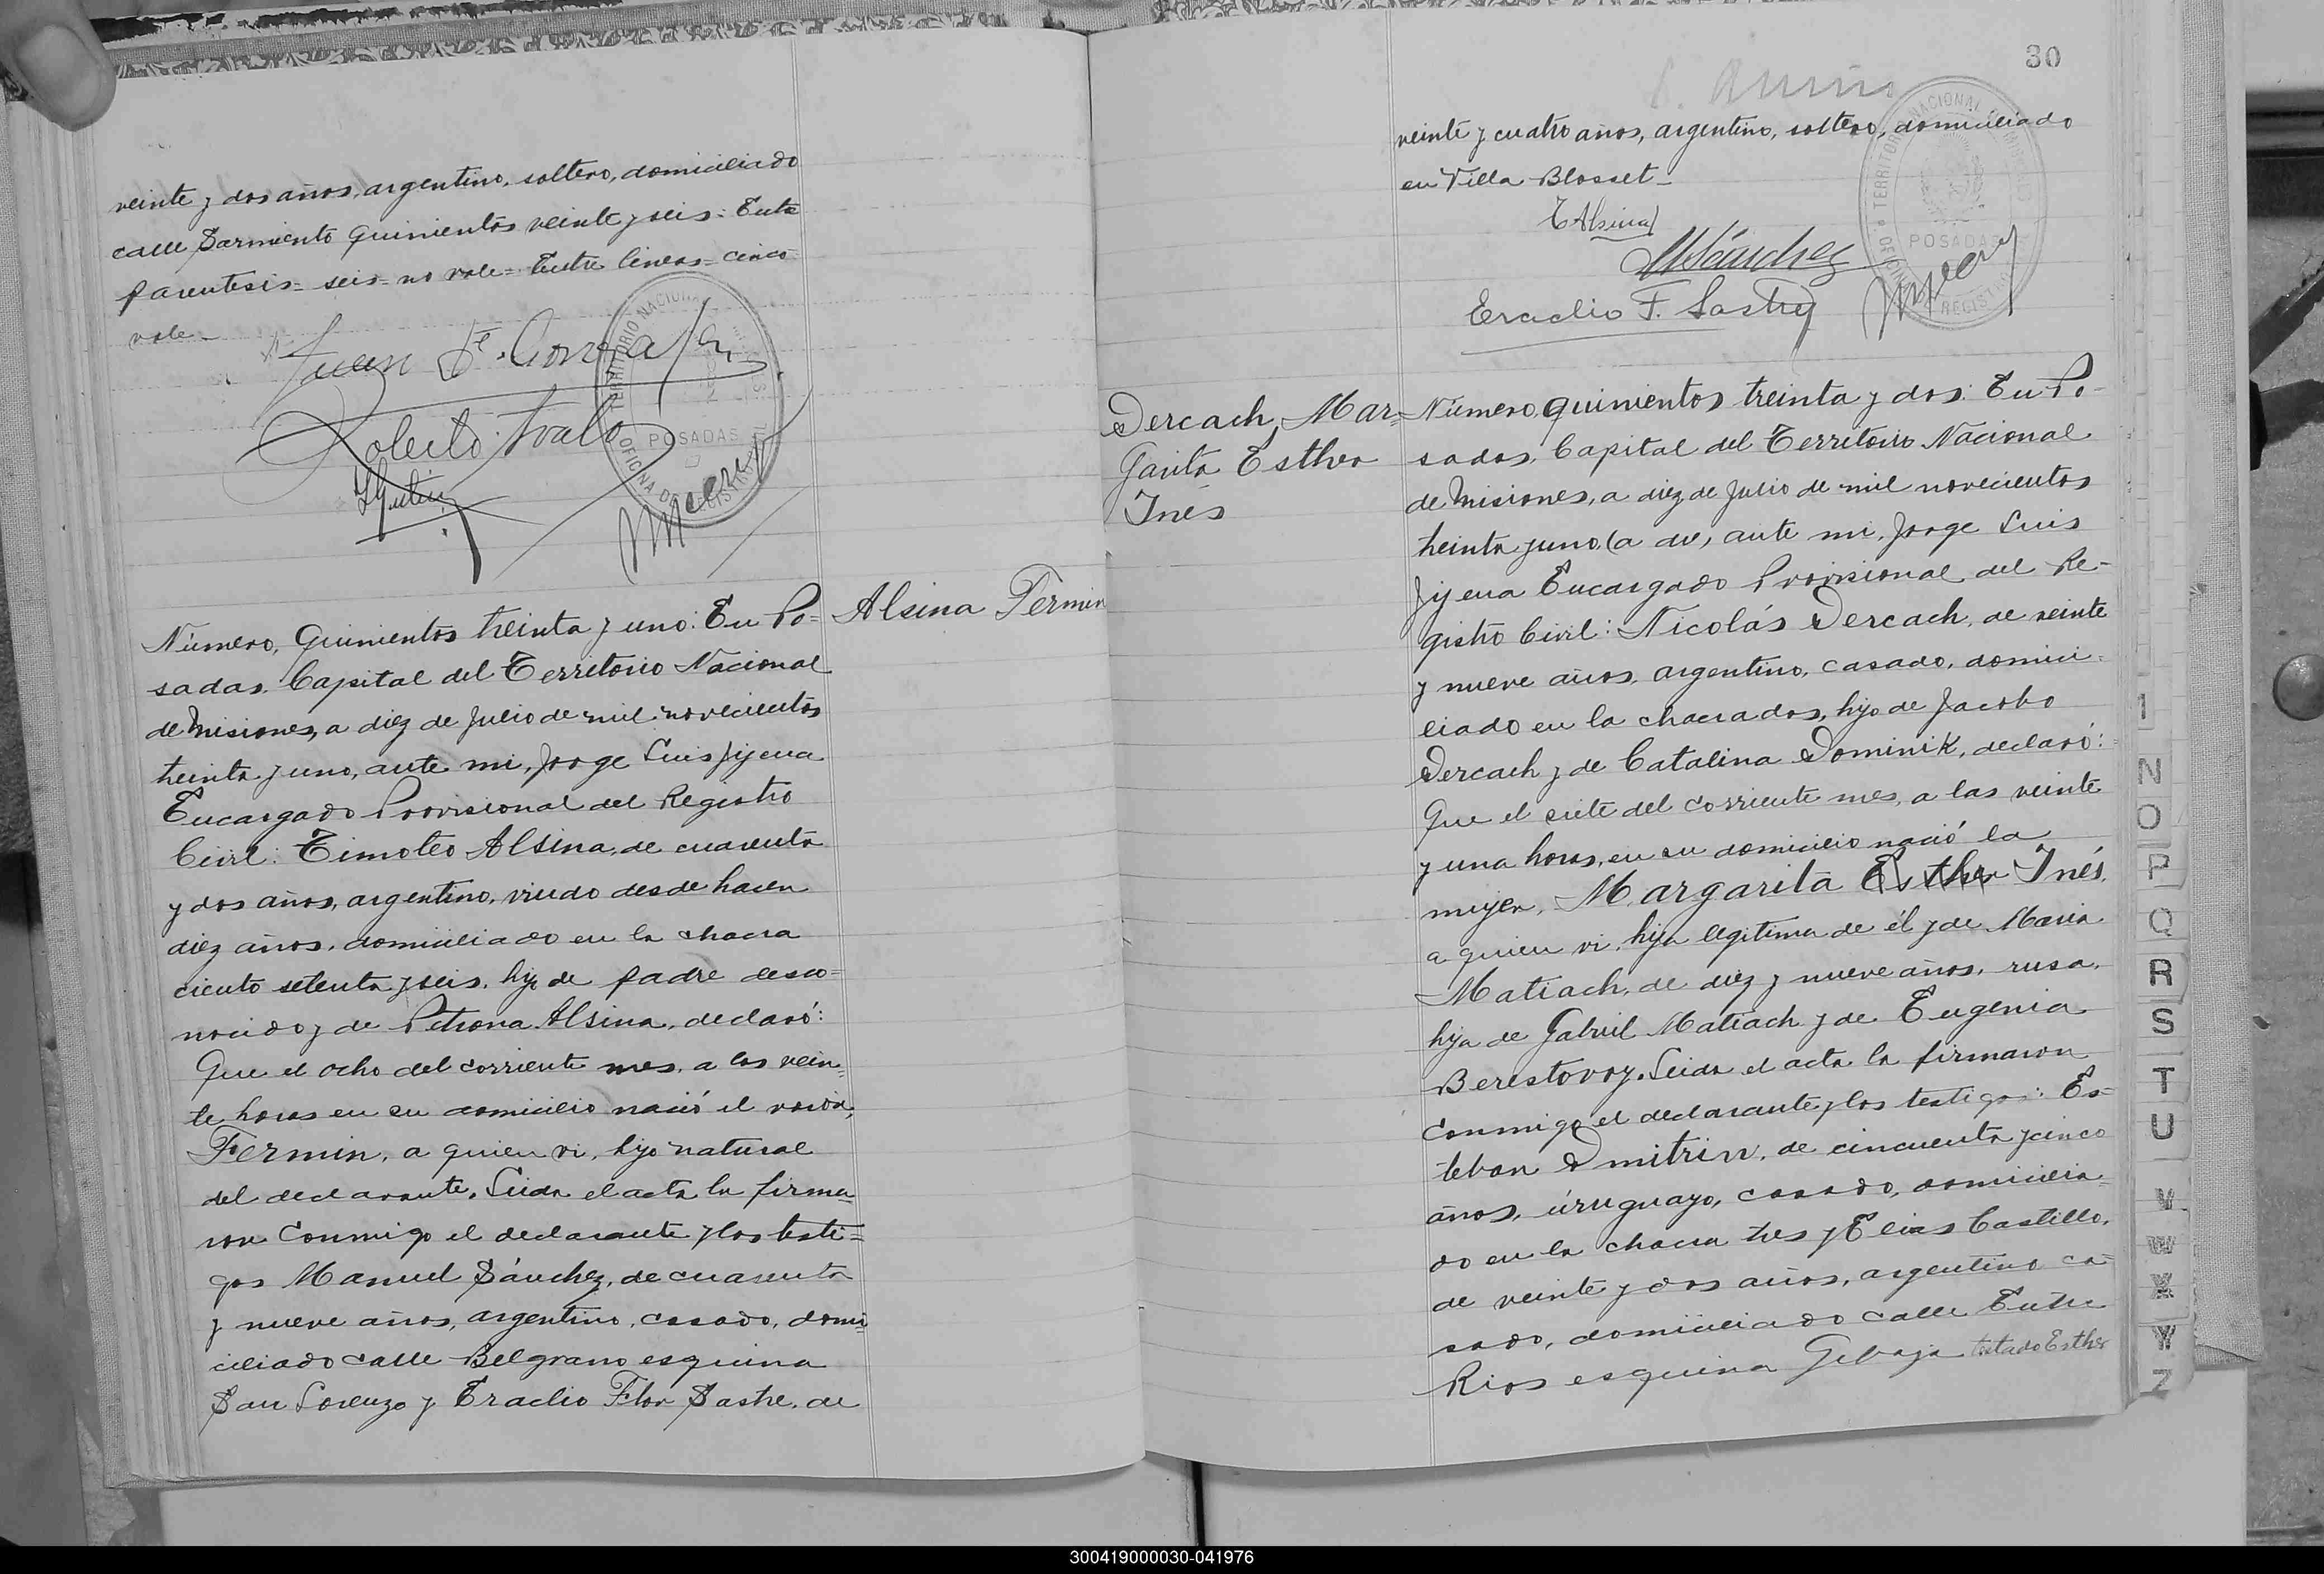 veinte y dos años, argentino, soltero, domiciliado
calle Sarmiento quinientos veinte y seis: Entre
parentesis= seis= no vale= Entre lineas= cinco
vale-
Juan F. Gonzalez
Roberto
TERRITORIO NACIONAL DE MISIONES
POSADAS
OFICINA DE REGISTRO CIVIL
Número, Quinientos treinta y uno: En Po=
sadas. Capital del Territorio Nacional
de Misiones, a diez de Julio de mil novecientos
treinta y uno, ante mi, Jorge Luis Jijena
Encargado Provisional del Registro
Civil: Timoteo Alsina, de cuarenta
y dos años, argentino, viudo desde hacen
diez años, domiciliado en la chacra
ciento setenta y seis, hijo de padre desco=
nocido y de Petrona Alsina, declaró:
Que el ocho del corriente mes, a las vein=
te horas en su domicilio nació el varón,
Fermin, a quien vi, hijo natural
del declarante. Leida el acta la firma=
ron conmigo el declarante y los testi=
gos Manuel Sánchez, de cuarenta
y nueve años, argentino, casado, domi=
ciliado calle Belgrano esquina
San Lorenzo y Eraclio Flor Sastre, de
Alsina Fermin
30
veinte y cuatro años, argentino, soltero, domiciliado
en Villa Blosset-
T Alsina
M Sánchez
Eraclio F. Sastre
TERRITORIO NACIONAL DE MISIONES
POSADAS
OFICINA DE REGISTRO CIVIL
Dercach, Mar=
garita Esther
Inés
Número, quinientos treinta y dos: En Po-
sadas, Capital del Territorio Nacional
de Misiones, a diez de Julio de mil novecientos
treinta y uno, (a de) ante mi, Jorge Luis
Jijena Encargado Provisional del Re-
gistro Civil: Nicolás Dercach, de veinte
y nueve años, argentino, casado, domici-
liado en la chacra dos, hijo de Jacobo
Dercach y de Catalina Dominik, declaró:
Que el siete del corriente mes, a las veinte
y una horas, en su domicilio nació la
mujer, Margarita Esther Inés,
a quien vi, hija legitima de él y de Maria
Matiach, de diez y nueve años, rusa,
hija de Gabriel Matiach y de Eugenia
Berestovoy. Leida el acta la firmaron
conmigo el declarante y los testigos: Es=
teban Dmitrin, de cincuenta y cinco
años, uruguayo, casado, domicilia=
do en la chacra tres y Elias Castillo,
de veinte y dos años, argentino ca=
sado, domiciliado calle Entre
Rios esquina testado Esther
1
N
O
P
Q
R
S
T
U
V
W
X
Y
Z
300419000030-041976